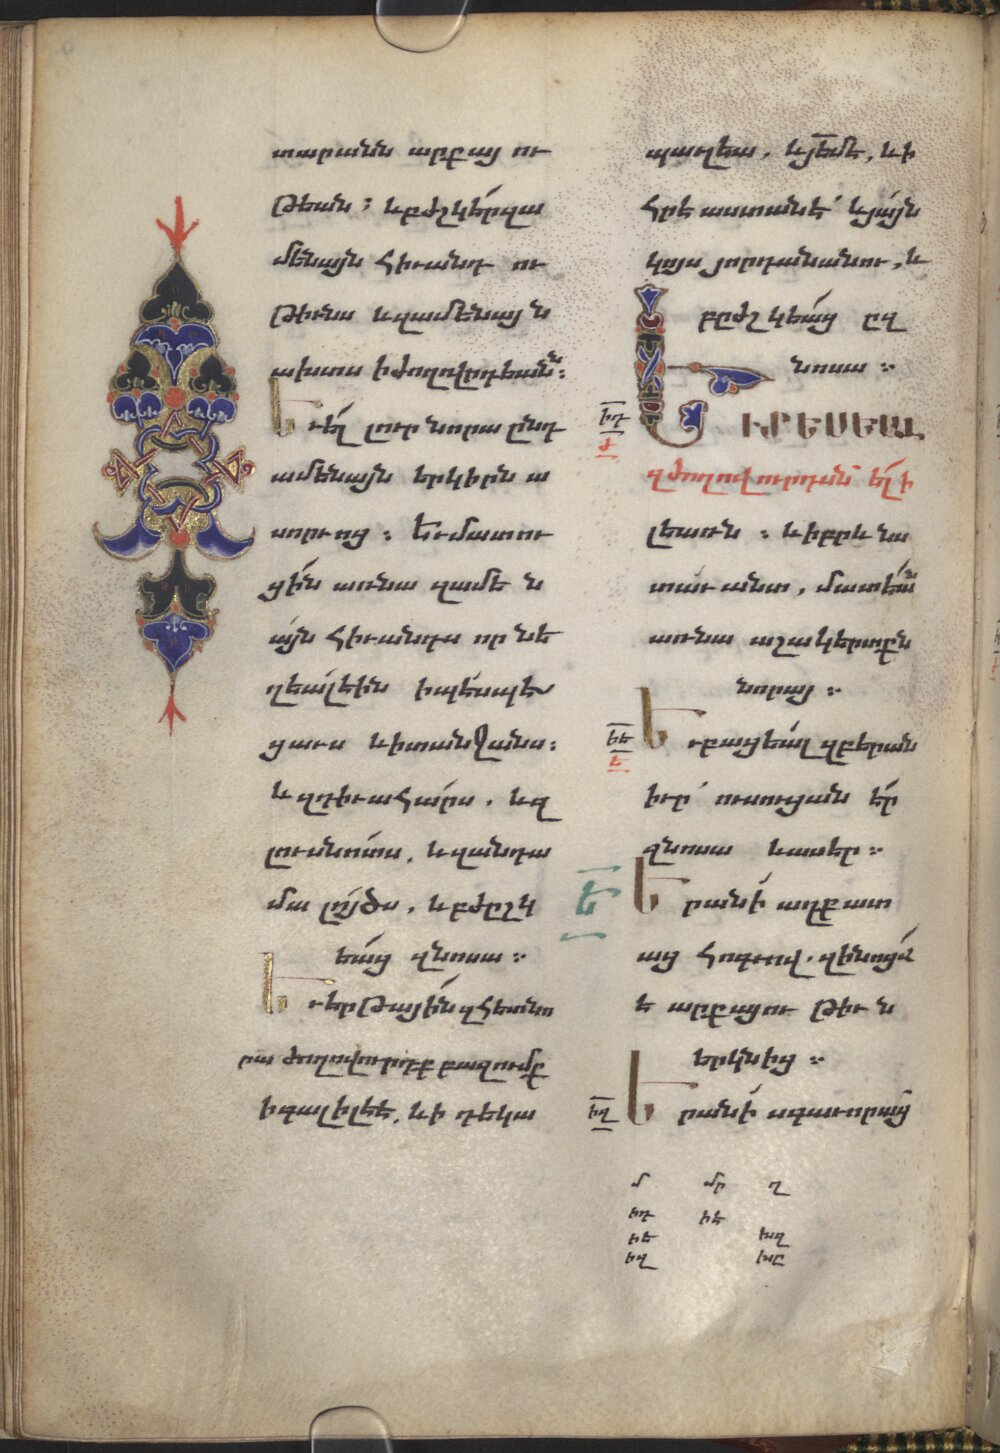 տարանն արքայ ու
թեան։ և բժշկէր զա
մենայն հիւանդ ու
թիւնս և զամենայն
ախտս ի ժողովրդեանն։
Եւ ել լուր նորա ընդ
ամենայն երկիրն ա
սորւոց։ Եւ մատու
ցին առ նա զամե ն
այն հիւանդս որ նե
ղեալ էին ի պէսպէս
ցաւս և ի տանջանս։
և զդիւահարս. և զ
լուսնոտս, և զանդա
մա լոյծս. և բժըշկ
եաց զնոսա։
Եւ երթային զհետ նո
րա ժողովուրդք բազումք
ի գալիլեէ, և ի դեկա
պաւղեա. և յեմէ, և ի
հրեաստանէ՝ և յայն
կոյս յորդանանու, և
բըժշկեաց ըզ
նոսա։
իդ
ժ
ԻՒ ՏԵՍԵԱԼ
զժողովուրդսն ել ի
լեառն։ և իբրև նս
տաւ անտ, մատեան
առ նա աշակերտքն
նորայ։
իե
ե
Եւ բացեալ զբերան
իւր՝ ուսուցանէր
զնոսա և ասեր։
Ե
Երանի աղքատ
աց հոգւով. զի նոցա
է արքայու թիւ ն
երկնից։
իզ
Երանի սգաւորաց
մ մր ղ
իդ իե
իե խզ
իզ խը